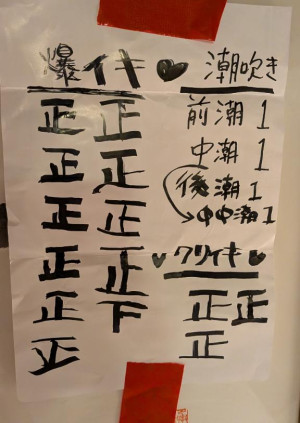 爆イキ♥
正 正
正 正
正 正
正 正
正 下
正
潮吹き
前潮 1
中潮 1
後潮 1
→中中潮 1
♥クリイキ♥
正 正
正